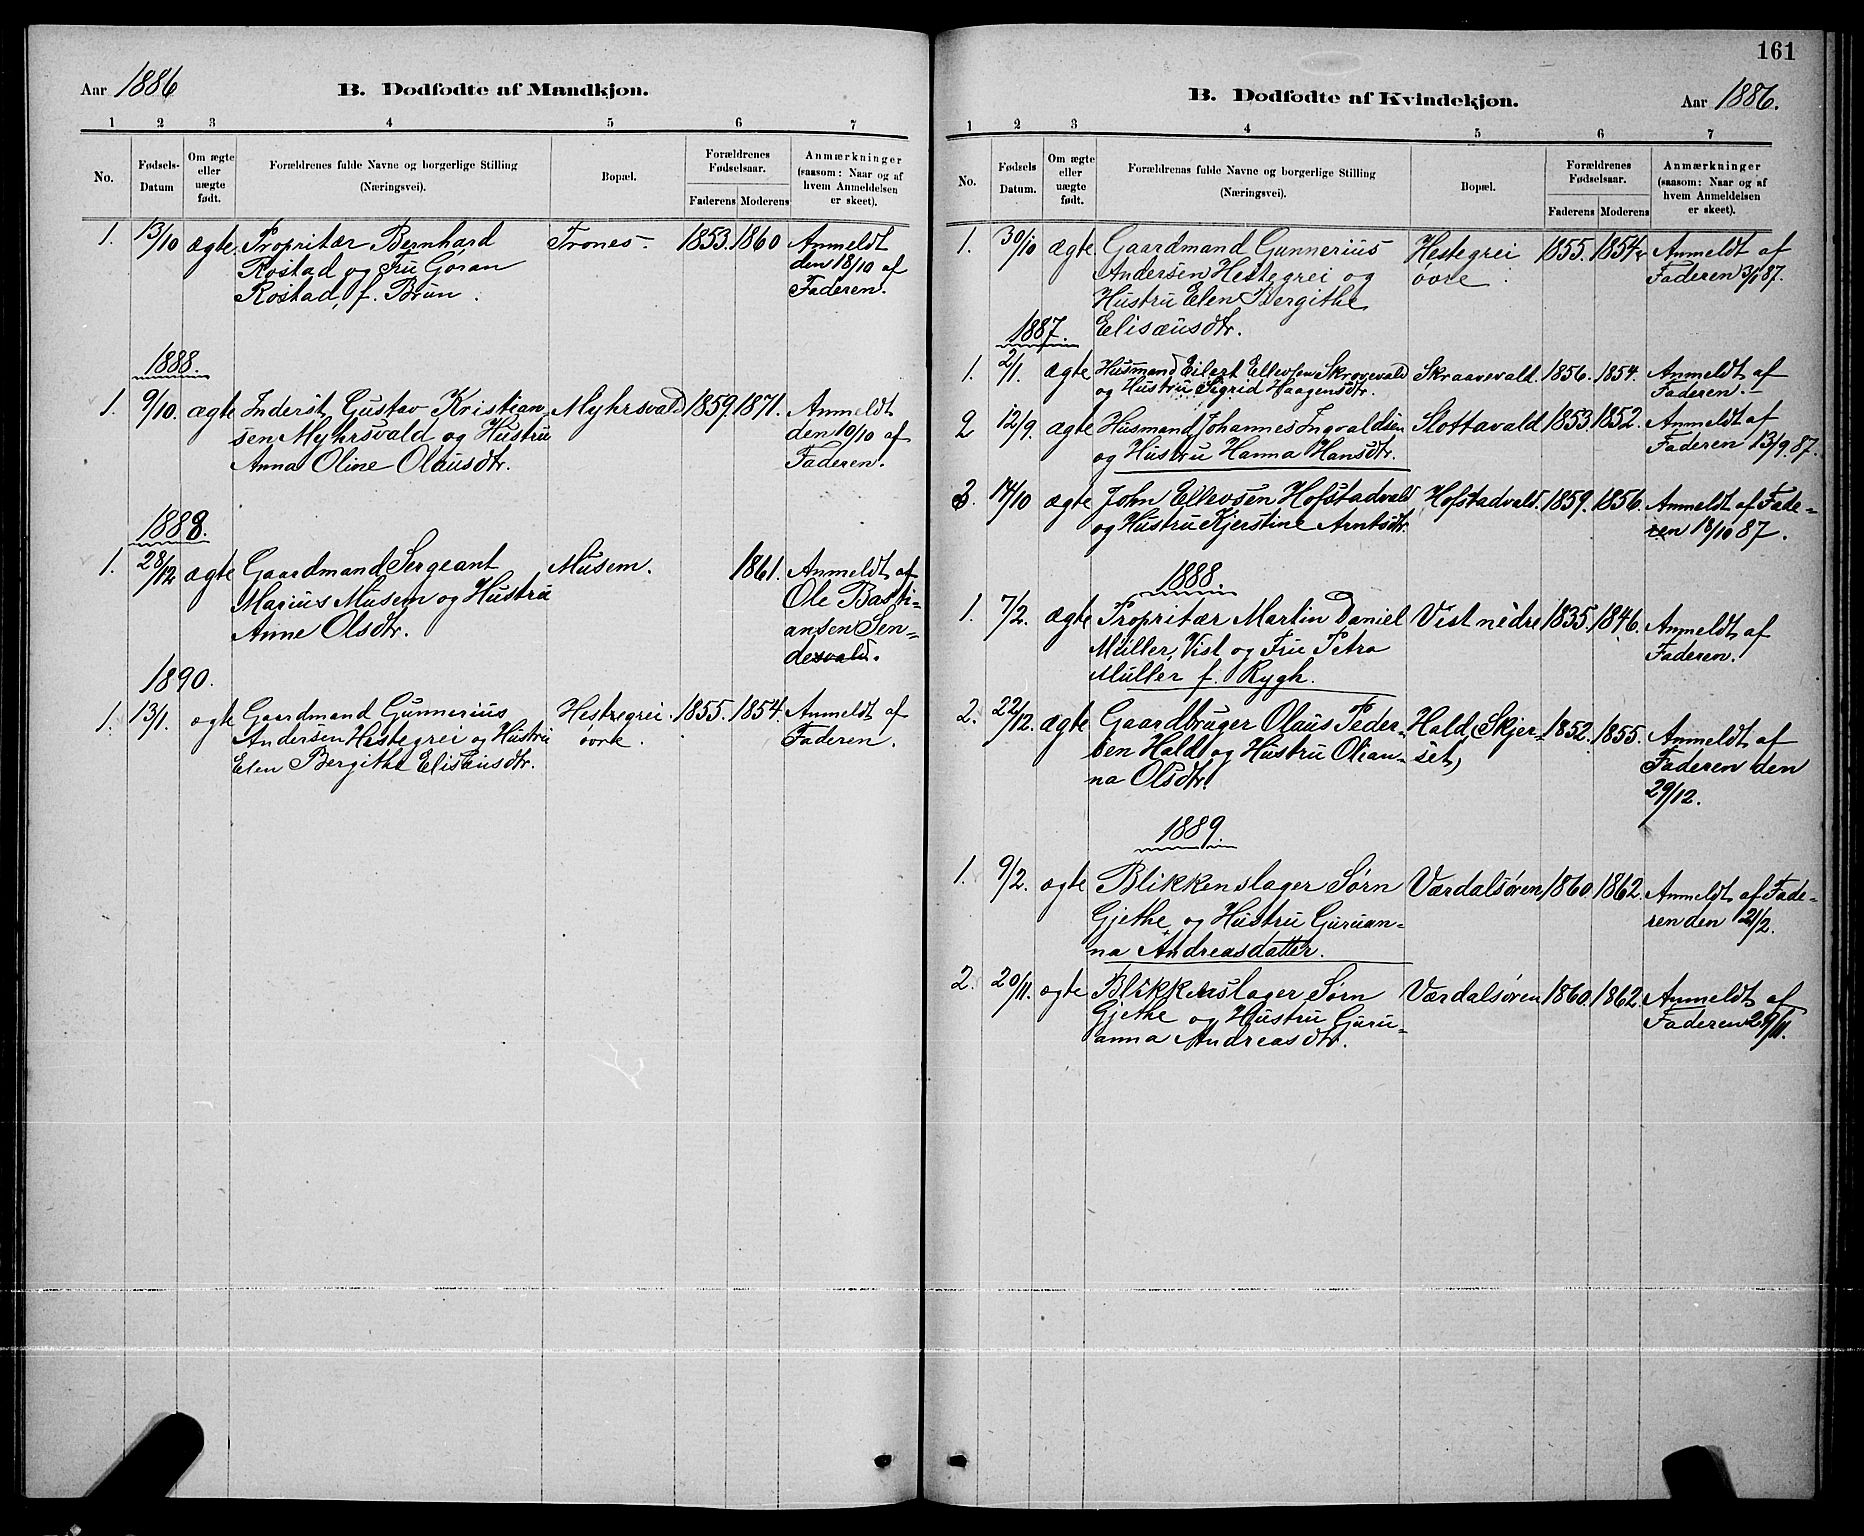 Aar 1886
B. Dødfødte af Mandkjøn.
1 2 3 4 5 6 7
No.
Fødsels-
Datum
Om ægte
eller
uægte
født.
Forældrenes fulde Navne og borgerlige Stilling
(Næringsvei).
Bopæl.
Forældrenes
Fødselsaar.
Faderens Moderens
Anmærkninger
(saasom: Naar og af
hvem Anmeldelsen
er skeet).
1. 13/10 ægte. Propritær Bernhard Trones. 1853. 1860 Anmeldt
Rostad og Fru Goran den 18/10 af
Rostad, f. Brun. Faderen.
1888.
1. 9/10. ægte Inderst Gustav Kristian- Myhrsvald 1859. 1871. Anmeldt
sen Myhrsvald og Hustru den 10/10 af
Anna Oline Olausdtr. Faderen.
1888.
1. 28/12 ægte Gaardmand Sergeant Musem. 1861. Anmeldt af
Marius Musem og Hustru Ole Basti-
Anne Olsdtr. ansen Sen-
desvald.
1890.
1. 13/1. ægte Gaardmand Gunnerius Hestegrei 1855. 1854. Anmeldt af
Andersen Hestegrei og Hustru øvre. Faderen.
Elen Bergithe Elisæusdtr.
161
B. Dødfødte af Kvindekjøn.
Aar 1886.
1 2 3 4 5 6 7
No.
Fødsels
Datum.
Om ægte
eller
uægte
født.
Forældrenes fulde Navne og borgerlige Stilling
(Næringsvei).
Bopæl.
Forældrenes
Fødselsaar.
Faderens Moderens
Anmærkninger
(saasom: Naar og af
hvem Anmeldelsen
er skeet).
1. 30/10 ægte. Gaardmand Gunnerius Hestegrei 1855. 1854. Anmeldt af
Andersen Hestegrei og øvre. Faderen 87.
Hustru Elen Bergithe
1887. Elisæusdtr.
1. 2/1. ægte Husmand Eilert Ellevsen Skrovevald Skraavevald. 1856. 1854. Anmeldt af
og Hustru Sigrid Haagensdtr. Faderen.
2 12/9. ægte Husmand Johannes Ingvaldsen Slottavald 1853. 1852. Anmeldt af
og Hustru Hanna Hansdtr. Faderen 13/9 87.
3. 14/10 ægte John Ellevsen Hofstadvald Hofstadvald. 1859. 1856. Anmeldt af Fade-
og Hustru Kjerstine Arntsdtr. ren 18/10 87.
1888.
1. 7/2. ægte Propritær Martin Daniel Vist nedre 1835. 1846. Anmeldt af
Müller, Vist og Fru Petra Faderen.
Müller f. Rygh.
2. 22/12. ægte Gaardbruger Olaus Peder- Hald (Skjer- 1852. 1855. Anmeldt af
sen Hald og Hustru Olian- set) Faderen den
na Olsdtr. 29/12.
1889.
1. 9/2. ægte Blikkenslager Sørn Værdalsøren 1860. 1862. Anmeldt af Fade-
Gjethe og Hustru Guruan- ren den 21/2.
na Andreasdatter.
2. 20/11. ægte Blikkenslager Sørn Værdalsøren 1860. 1862. Anmeldt af
Gjethe og Hustru Guru- Faderen 29/11.
anna Andreasdtr.